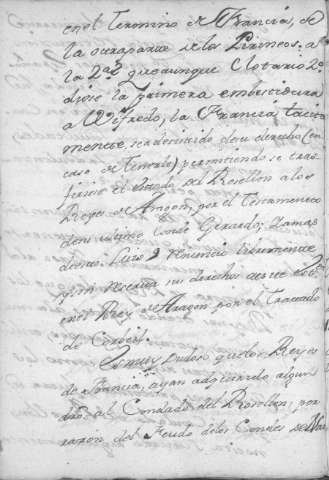 en el Termino de Francia, de
la otra parte de los Pirineos: a
la 2ª que aunque Clotario 2º
diese la primera embestidura
a Wifredo, la Francia tacita
mente, se ha desistido de su derecho (en
caso de tenerle) permitiendo se tras
firiese el estado del Rosellon a los
Reyes de Aragon, por el Testamento
de su ultimo Conde Gerardo; y amas
de esto: Luis 9 renuncio libremente
y sin reserva su derecho
en el Rey de Aragon por el Tractado
de Corbeil.
Es muy dudoso que los Reyes
de Francia, ayan adquirido algun
dro. al Condado del Rosellon, por
razon, del Feudo de los Condes de